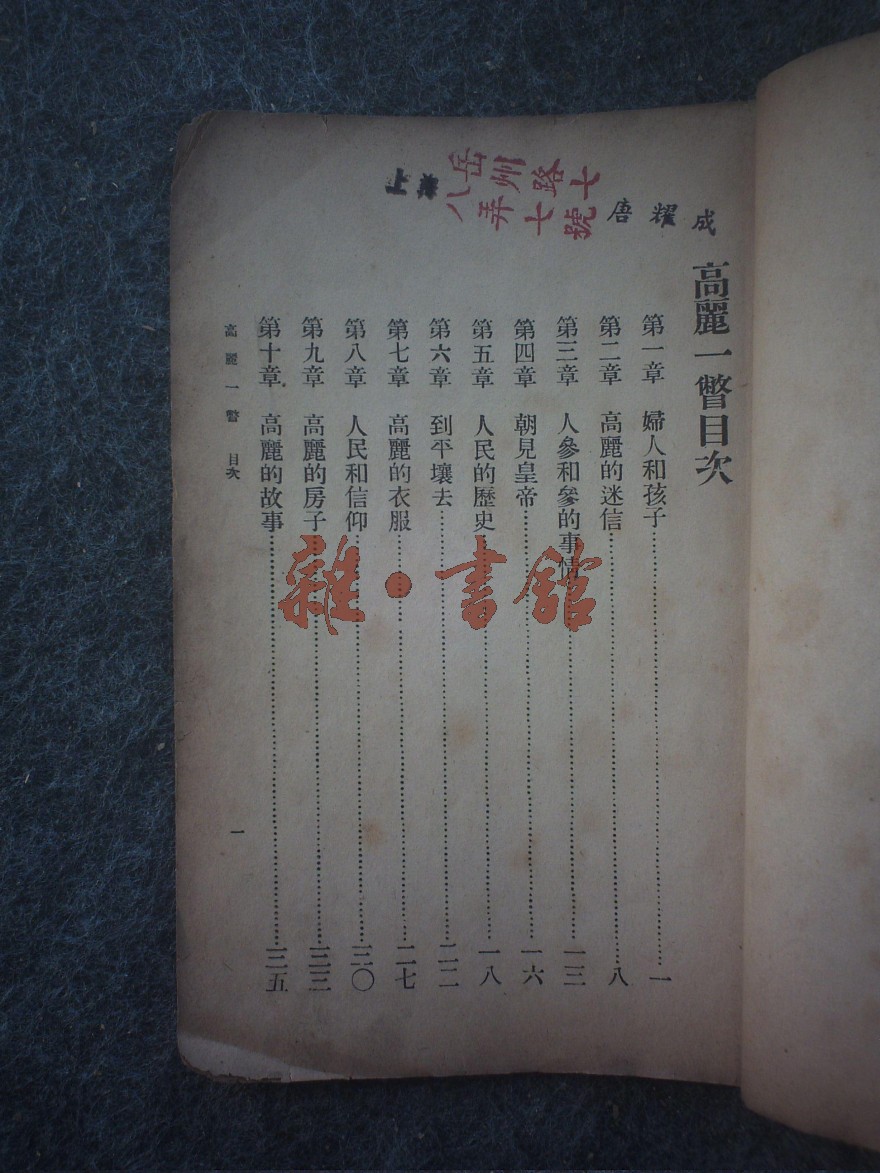 上海
岳州路七
八弄七號
唐耀成
高麗一瞥目次
第一章 婦人和孩子……一
第二章 高麗的迷信……八
第三章 人參和參的事情……一三
第四章 朝見皇帝……一六
第五章 人民的歷史……一八
第六章 到平壤去……二二
第七章 高麗的衣服……二七
第八章 人民和信仰……三〇
第九章 高麗的房子……三三
第十章 高麗的故事……三五
高麗一瞥 目次
一
雜·書館